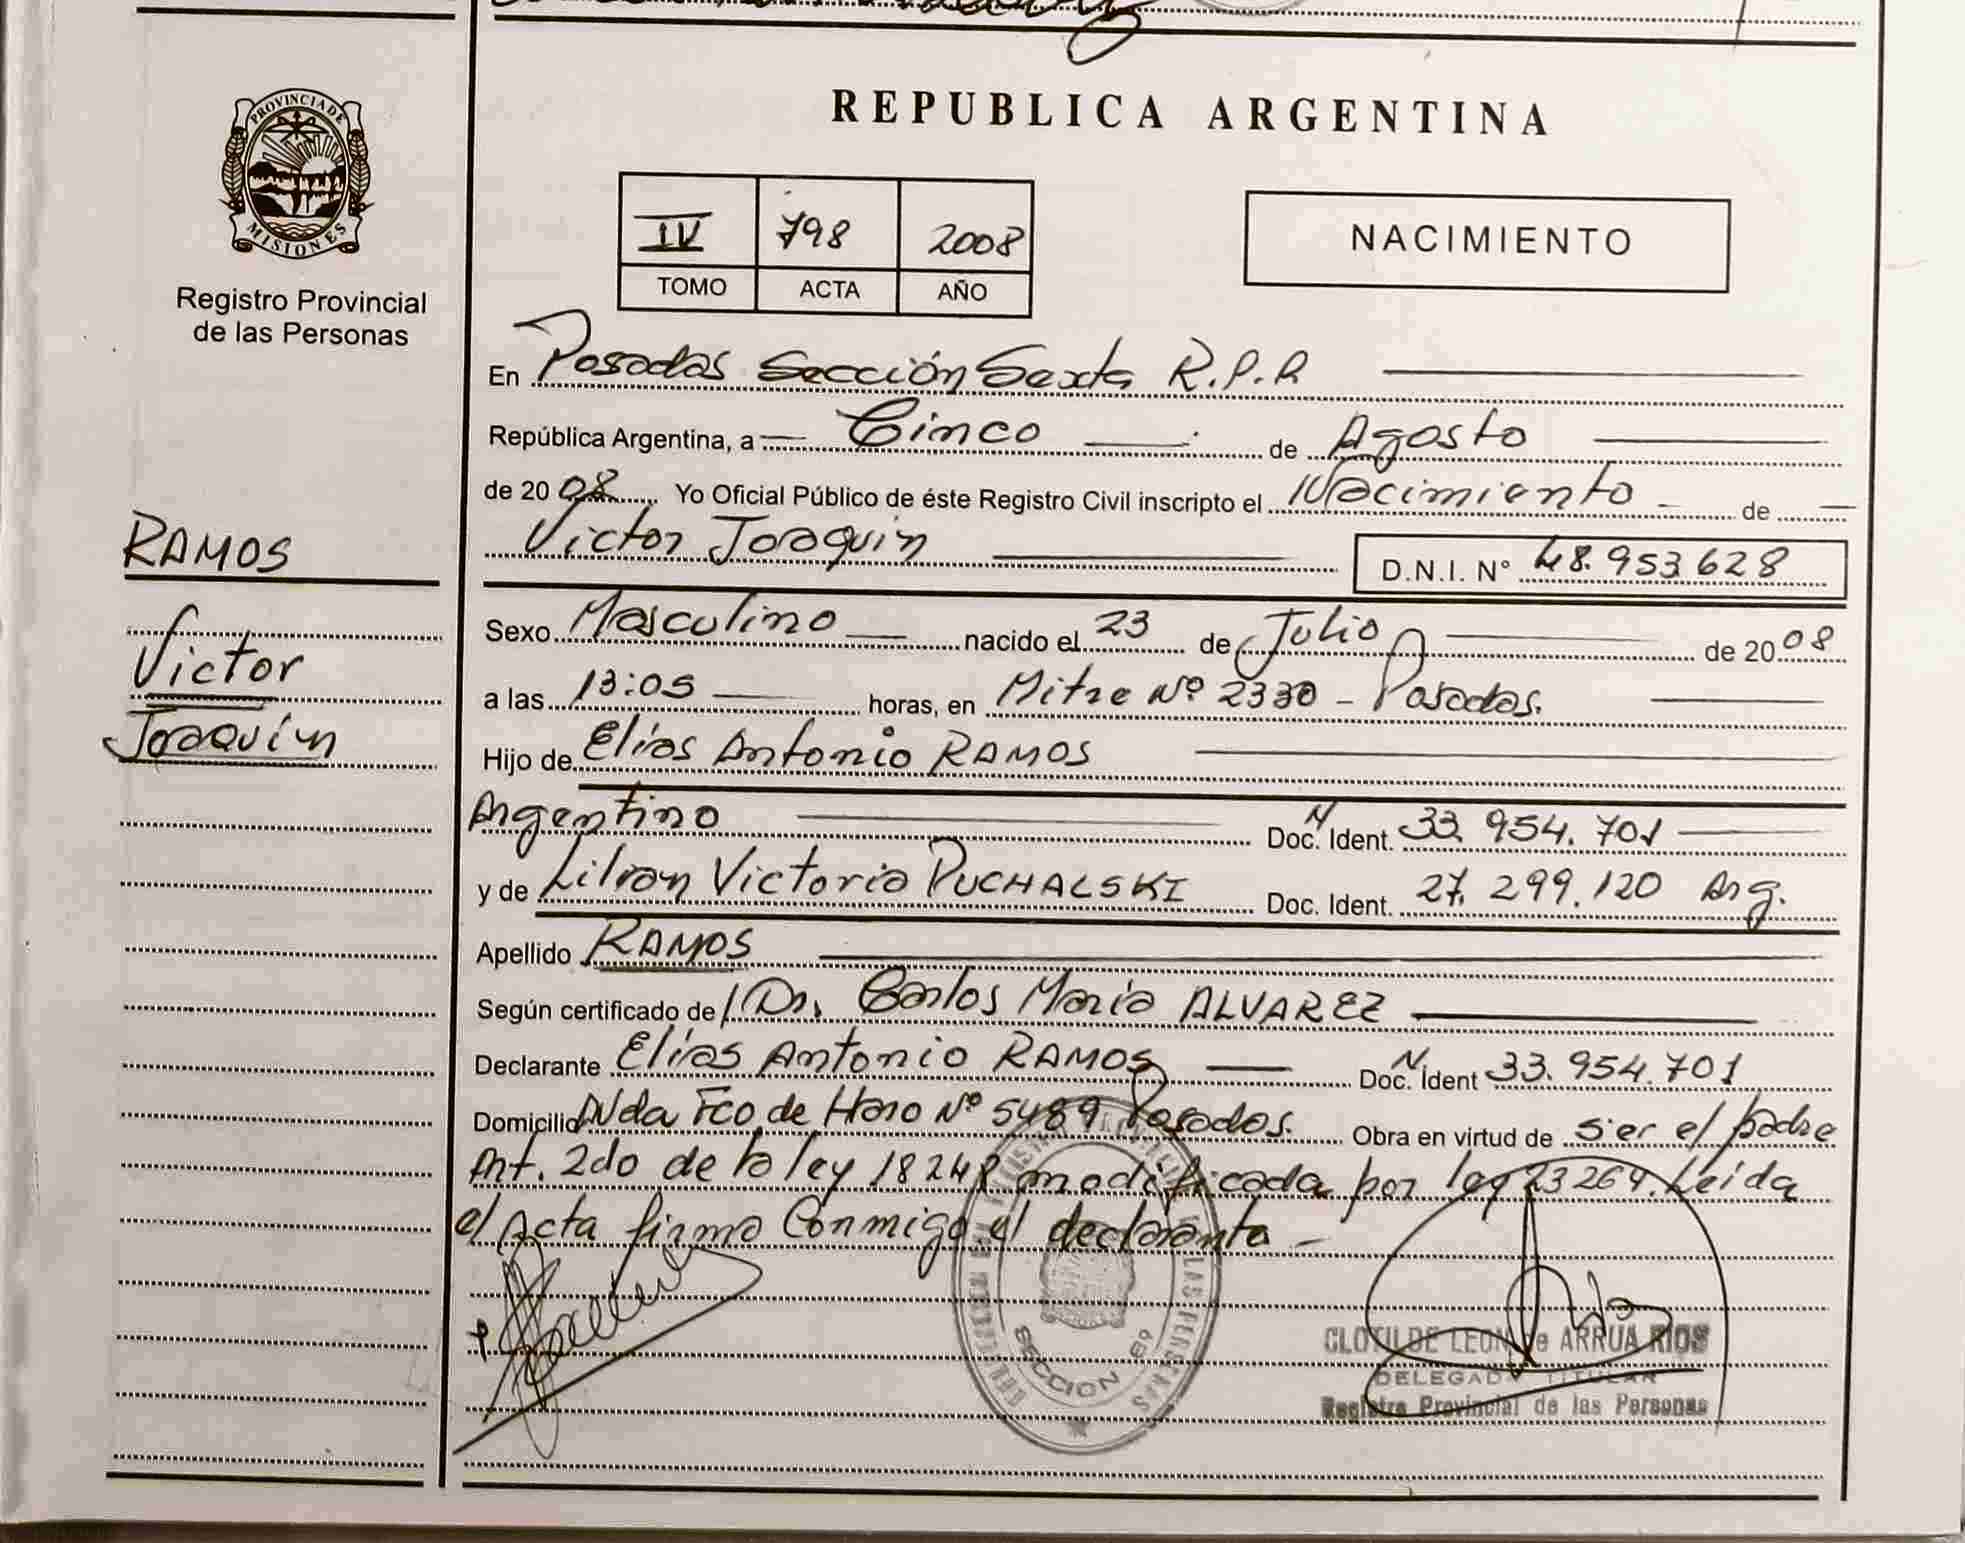 PROVINCIA DE
MISIONES
Registro Provincial
de las Personas
RAMOS
Victor
Joaquín
REPUBLICA ARGENTINA
IV 798 2008
TOMO ACTA AÑO
NACIMIENTO
En Posadas Sección Sexta R.P.P.
República Argentina, a Cinco de Agosto
de 2008 Yo Oficial Público de éste Registro Civil inscripto el Nacimiento de
Victor Joaquin D.N.I. N° 48.953.628
Sexo Masculino nacido el 23 de Julio de 2008
a las 13:05 horas, en Mitre Nº 2330 - Posadas.
Hijo de Elías Antonio RAMOS
Argentino Doc. N Ident. 33.954.701
y de Lilian Victoria PUCHALSKI Doc. Ident. 27.299.120 Arg.
Apellido RAMOS
Según certificado de Dr. Carlos María ALVAREZ
Declarante Elías Antonio RAMOS Doc. N Ident 33.954.701
Domicilio AVda Fco de Haro Nº 5489 Posadas. Obra en virtud de ser el padre
Art. 2do de la ley 18248 modificada por ley 23264. Leída
el Acta firma Conmigo el declarante -
SECCION 6ª
LAS PERSONAS
CLOTILDE LEON de ARRUA RIOS
DELEGADA TITULAR
Registro Provincial de las Personas